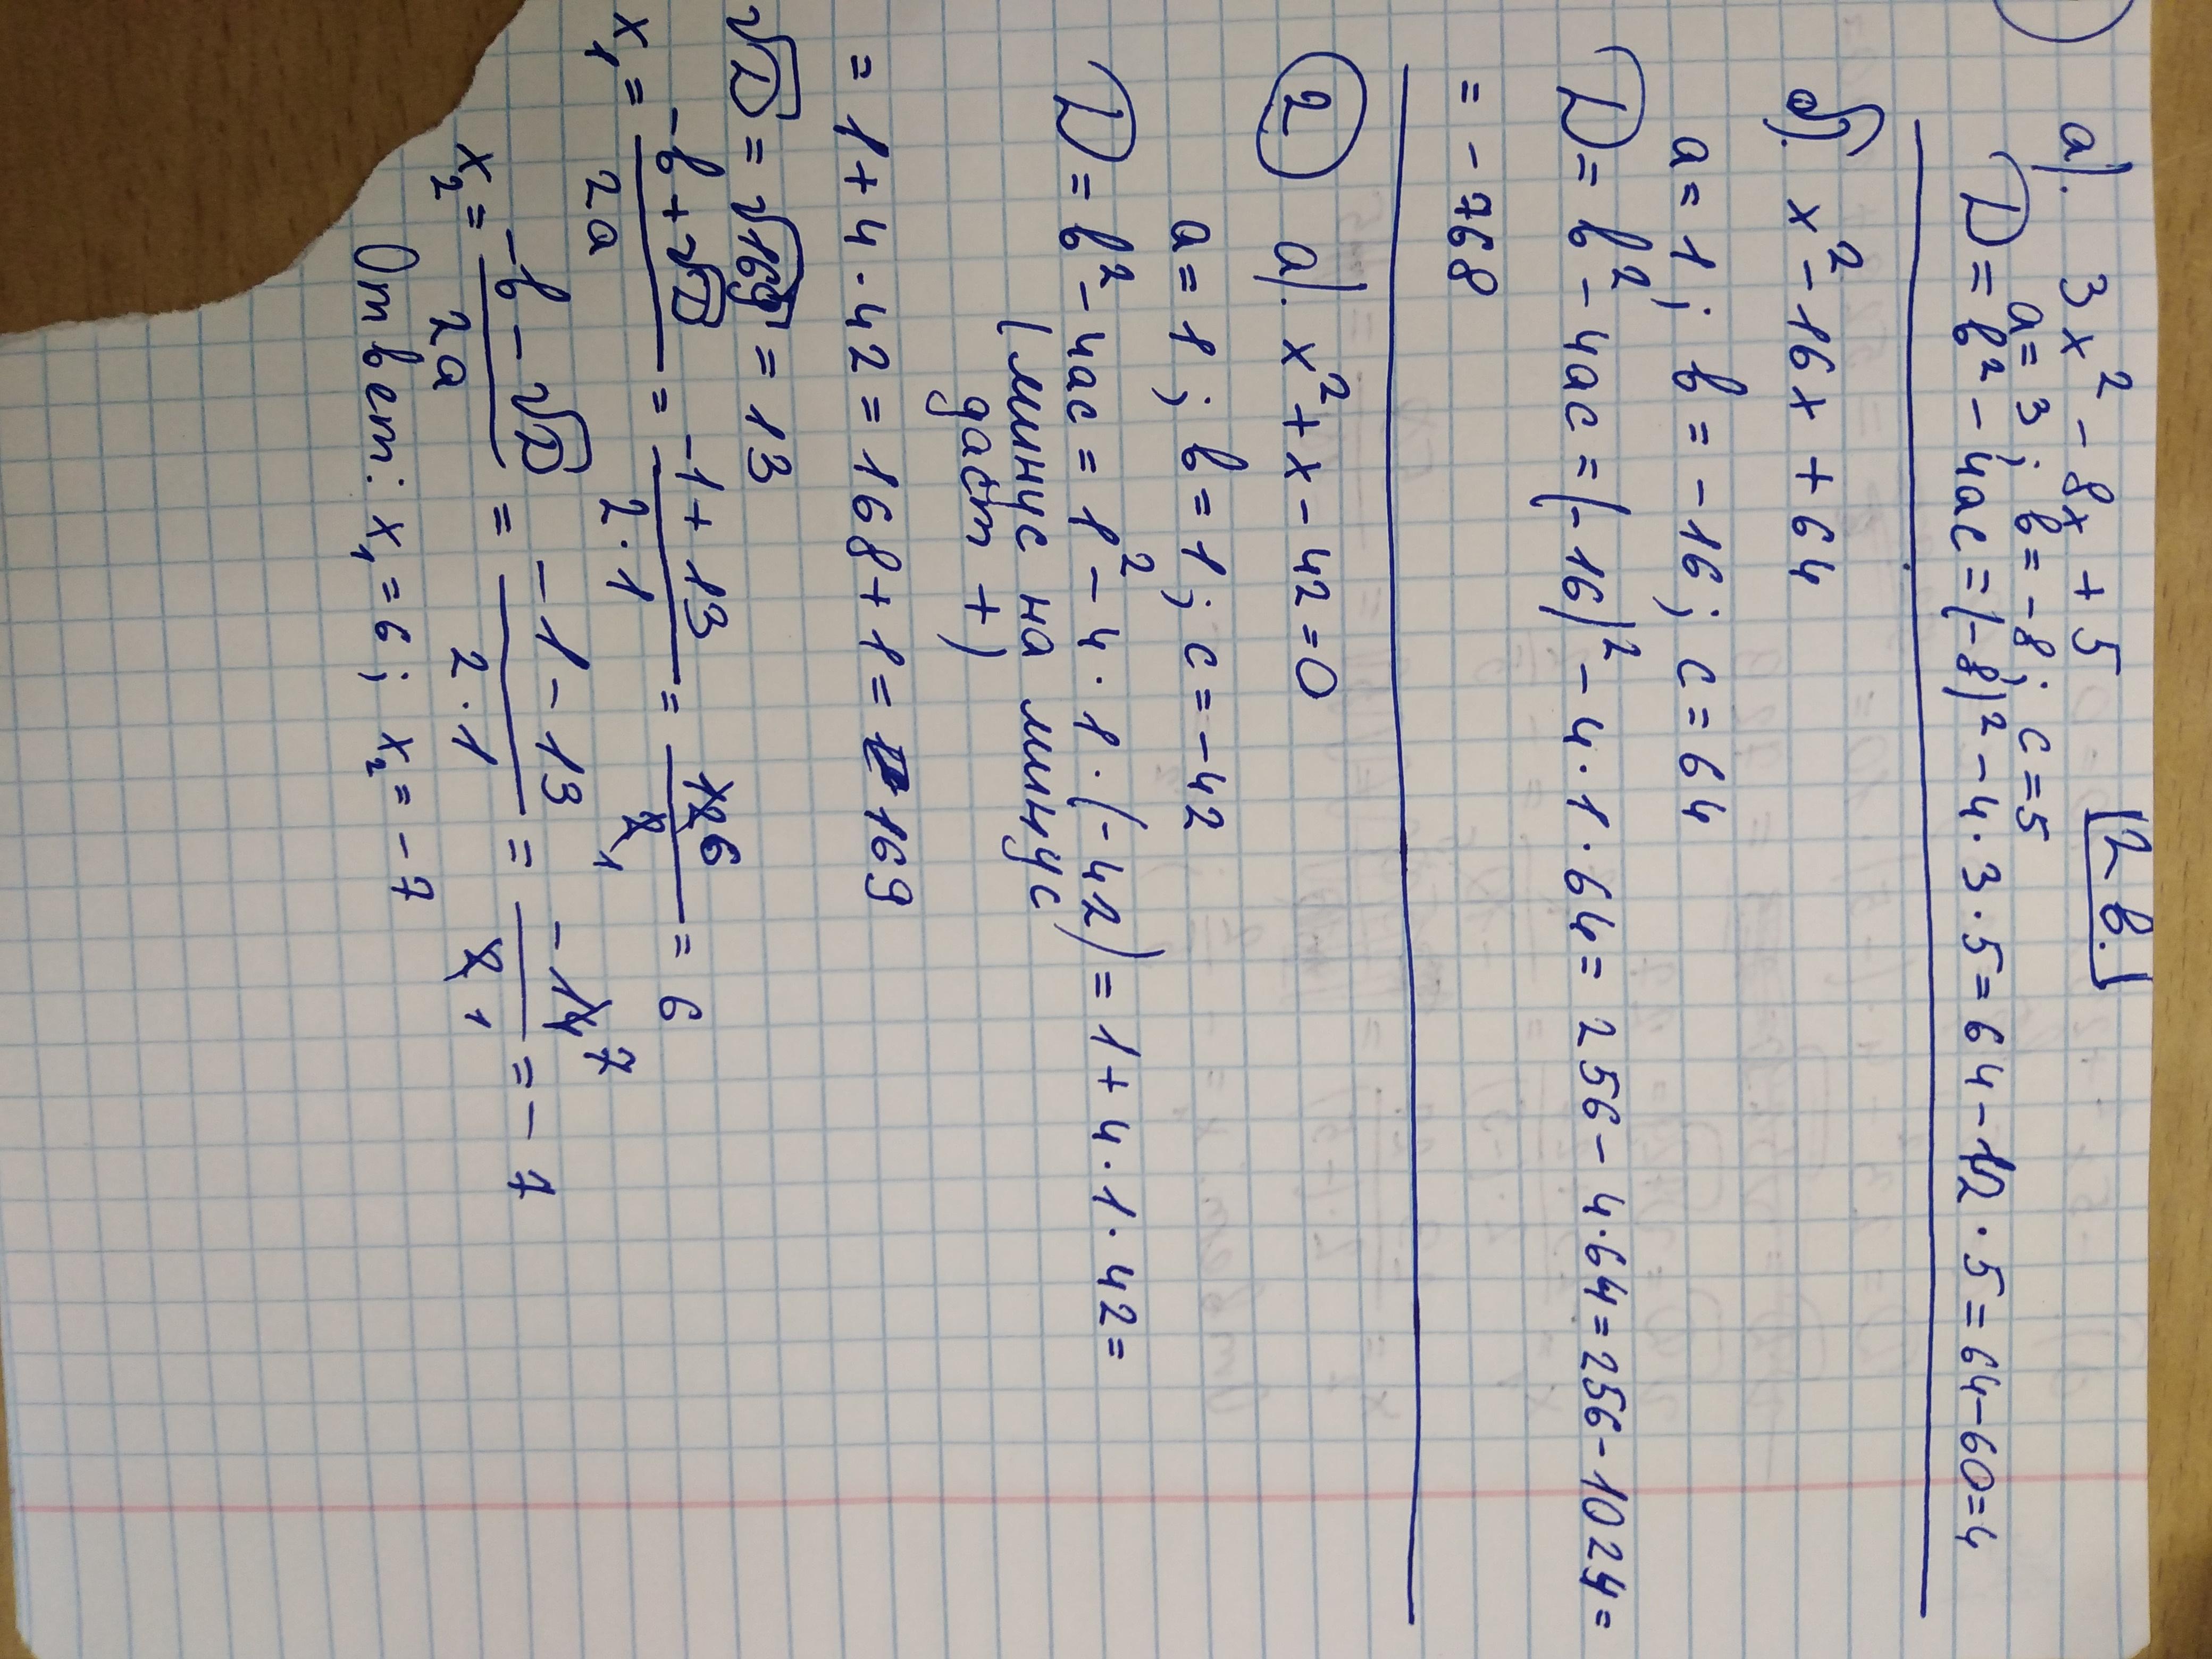 а). 3x² - 8x + 5 |2 в.|
a = 3; b = -8; c = 5
D = b² - 4ac = (-8)² - 4·3·5 = 64 - 12·5 = 64 - 60 = 4
б). x² - 16x + 64
a = 1; b = -16; c = 64
D = b² - 4ac = (-16)² - 4·1·64 = 256 - 4·64 = 256 - 1024 =
= -768
② а). x² + x - 42 = 0
a = 1; b = 1; c = -42
D = b² - 4ac = 1² - 4·1·(-42) = 1 + 4·1·42 =
(минус на минус
даст +)
= 1 + 4·42 = 168 + 1 = 169
√D = √169 = 13
x₁ = (-b + √D)/2a = (-1 + 13)/(2·1) = 12 6/2 1 = 6
x₂ = (-b - √D)/2a = (-1 - 13)/(2·1) = -14 7/2 1 = -7
Ответ: x₁ = 6; x₂ = -7